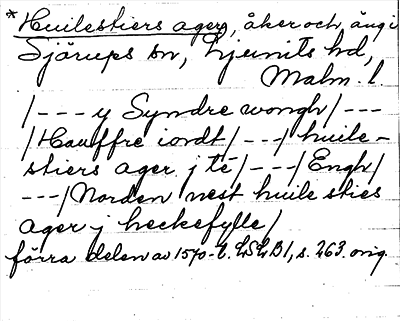 * Huilestiers ager, åker och äng i
Sjörups sn, Ljunits hd,
Malm. l
/--- y Syndre wongh/---
/Hauffre iordt/---/huile-
stiers ager j té/---/Engh/
---/Norden nest huile sties
ager j heckefylle/
förra delen av 1570-t. LSLB1, s. 263. orig.